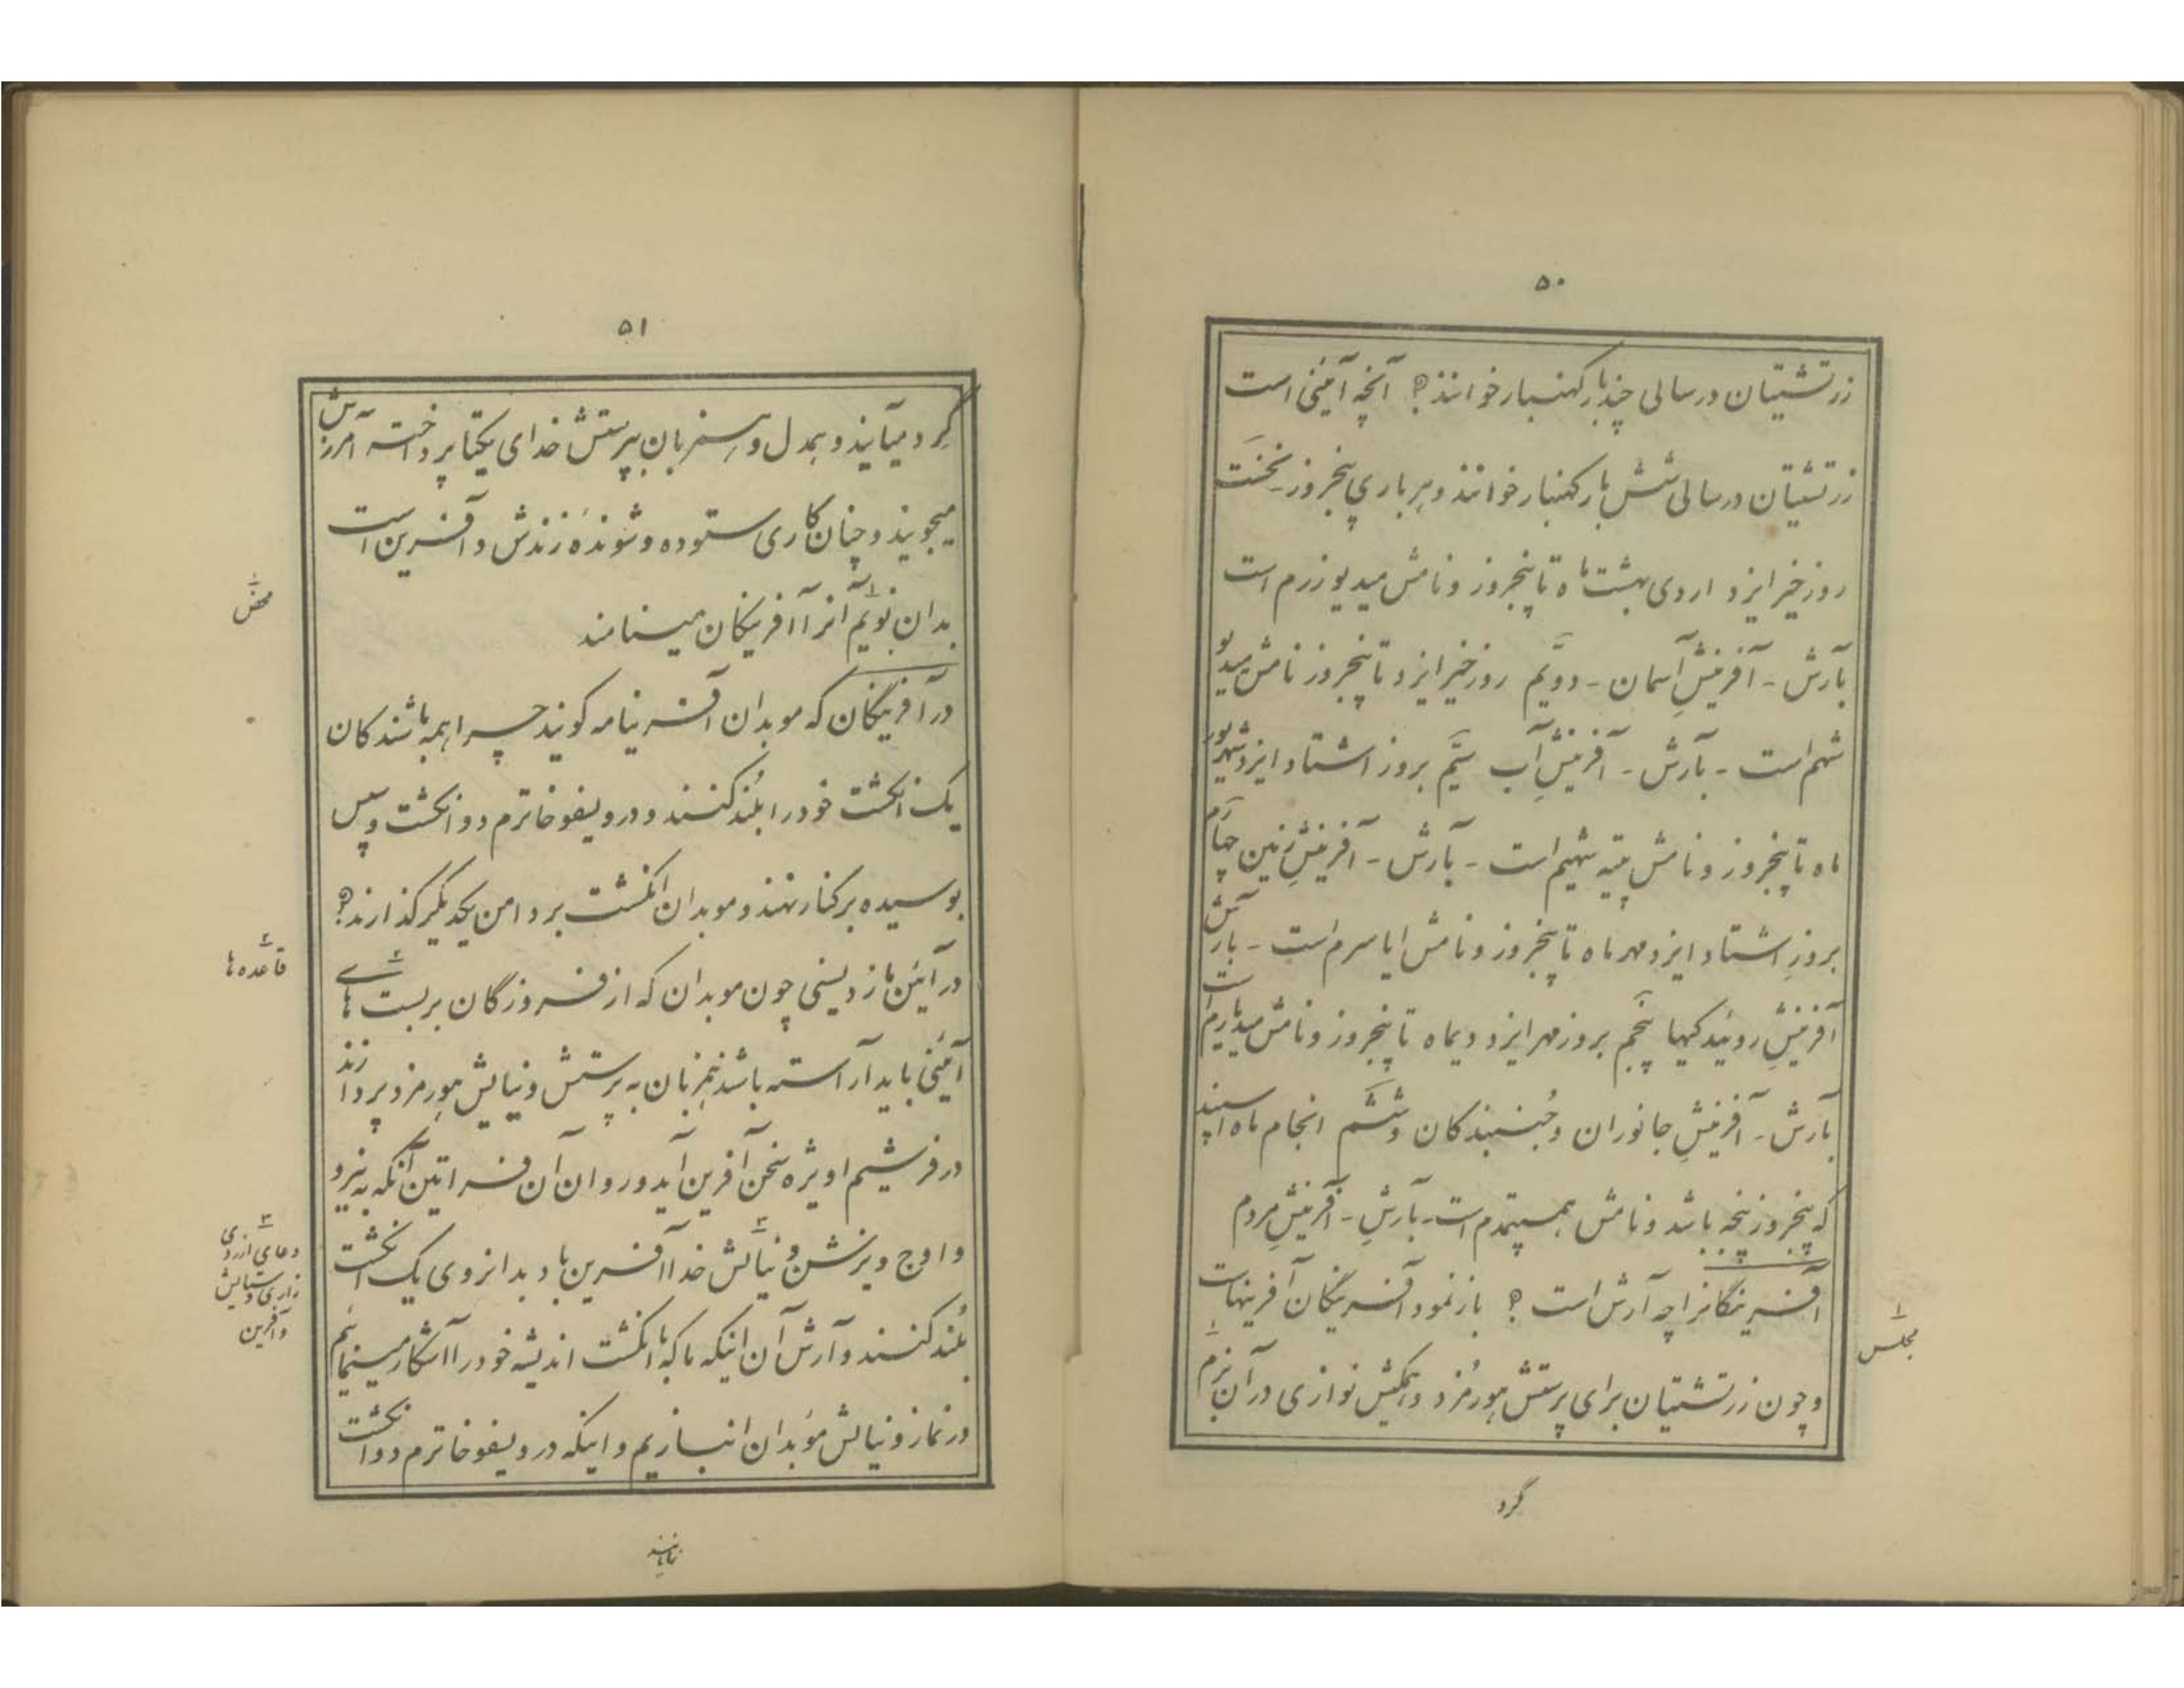 ۵۰
زرتشتیان در سالی چند بار کهنبار خوانند؟ آنچه آئینی است
زرتشتیان در سالی شش بار کهنبار خوانند و هر باری پنجروز نخست
روز خیر ایزد اردی بهشت ماه تا پنجروز و نامش میدیوزرم است
بآرش - آفرینشِ آسمان - دویّم روز خیر ایزد تا پنجروز نامش میدیو
شهم است - بآرش - آفرینشِ آب سیّم بروز اشتاد ایزد شهریور
ماه تا پنجروز و نامش پیته شهیم است - بآرش - آفرینشِ زمین چهارم
بروزِ اشتاد ایزد مهر ماه تا پنجروز و نامش ایاسرم است - بآرش
آفرینشِ روئیدکیها پنجم بروز مهر ایزد دیماه تا پنجروز و نامش میدیارم است
بآرش - آفرینشِ جانوران و جُنبندکان و ششم انجام ماه اسپند
که پنجروز پنجه باشد و نامش همسپتمدم است - بآرشِ - آفرینشِ مردم
آفرینگانرا چه آرش است؟ بازنمود آفرینگان آفرینهاست
و چون زرتشتیان برای پرستش هورمُزد و همکیش نوازی در آن بزم
۱ مجلس
گرد
۵۱
گرد میآیند و همدل و همزبان بپرستش خدای یکتا پرداخته آمرزش
میجویند و چنان کاری ستوده و شوندهٔ زندش و آفرین است
بدان نویم آنرا آفرینگان مینامند
۱ محض
در آفرینگان که موبدان آفرینامه کویند چرا همه باشندکان
یک انگشت خود را بلُند کنند و در ویسفوخاترم دو انگشت و سپس
بوسیده بر کنار نهند و موبدان انگشت بر دامن یکدیگر گذارند؟
در آئین مازدیسنی چون موبدان که از فروزگان بربست های
۲ قاعده ها
آئینی باید آراسته باشند همزبان به پرستش و نیایش هورمزد پردازند
در فرشیم اویژه سخن آفرین آید و روان آن فراتین آنکه به نیرو
و اوج ویزش و نیایش خدا آفرین باد بدانروی یک انگشت
۳ دعای از روی زاری و ستایش و آفرین
بلُند کنند و آرش آن اینکه ماکه با انگشت اندیشه خود را آشکار مینمائیم
در نماز و نیایش موُبدان انبازیم و اینکه در ویسفوخاترم دو انگشت